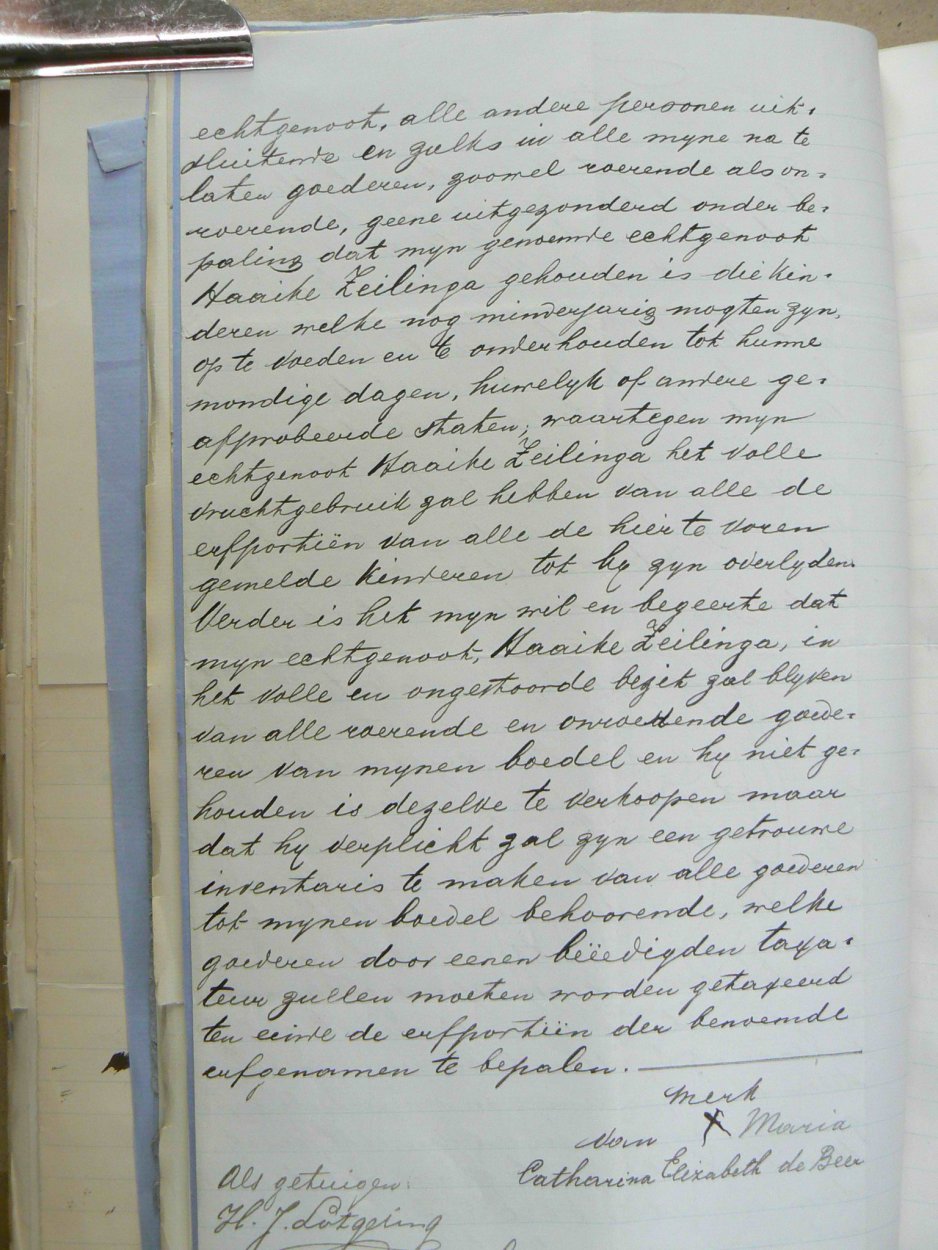 echtgenoot, alle andere personen uit-
sluitende en zulks in alle myne na te
laten goederen, zoowel roerende als on-
roerende, geene uitgezonderd onder be-
paling dat myn genoemde echtgenoot
Haaike Zeilinga gehouden is die kin-
deren welke nog minderjarig mogten zyn,
op te voeden en te onderhouden tot hunne
mondige dagen, huwelyk of andere ge-
approbeerde staten, waartegen myn
echtgenoot Haaike Zeilinga het volle
vruchtgebruik zal hebben van alle de
erfportiën van alle de hier te voren
gemelde kinderen tot by zyn overlyden.
Verder is het myn wil en begeerte dat
myn echtgenoot, Haaike Zeilinga, in
het volle en ongestoorde bezit zal blyven
van alle roerende en onroerende goede-
ren van mynen boedel en hy niet ge-
houden is dezelve te verkoopen maar
dat hy verplicht zal zyn een getrouwe
inventaris te maken van alle goederen
tot mynen boedel behoorende, welke
goederen door eenen beëedigden taxa-
teur zullen moeten worden getaxeerd
ten einde de erfportiën der benoemde
erfgenamen te bepalen.
merk
van X Maria
Catharina Elizabeth de Beer
Als getuigen:
H. J. Lötgering